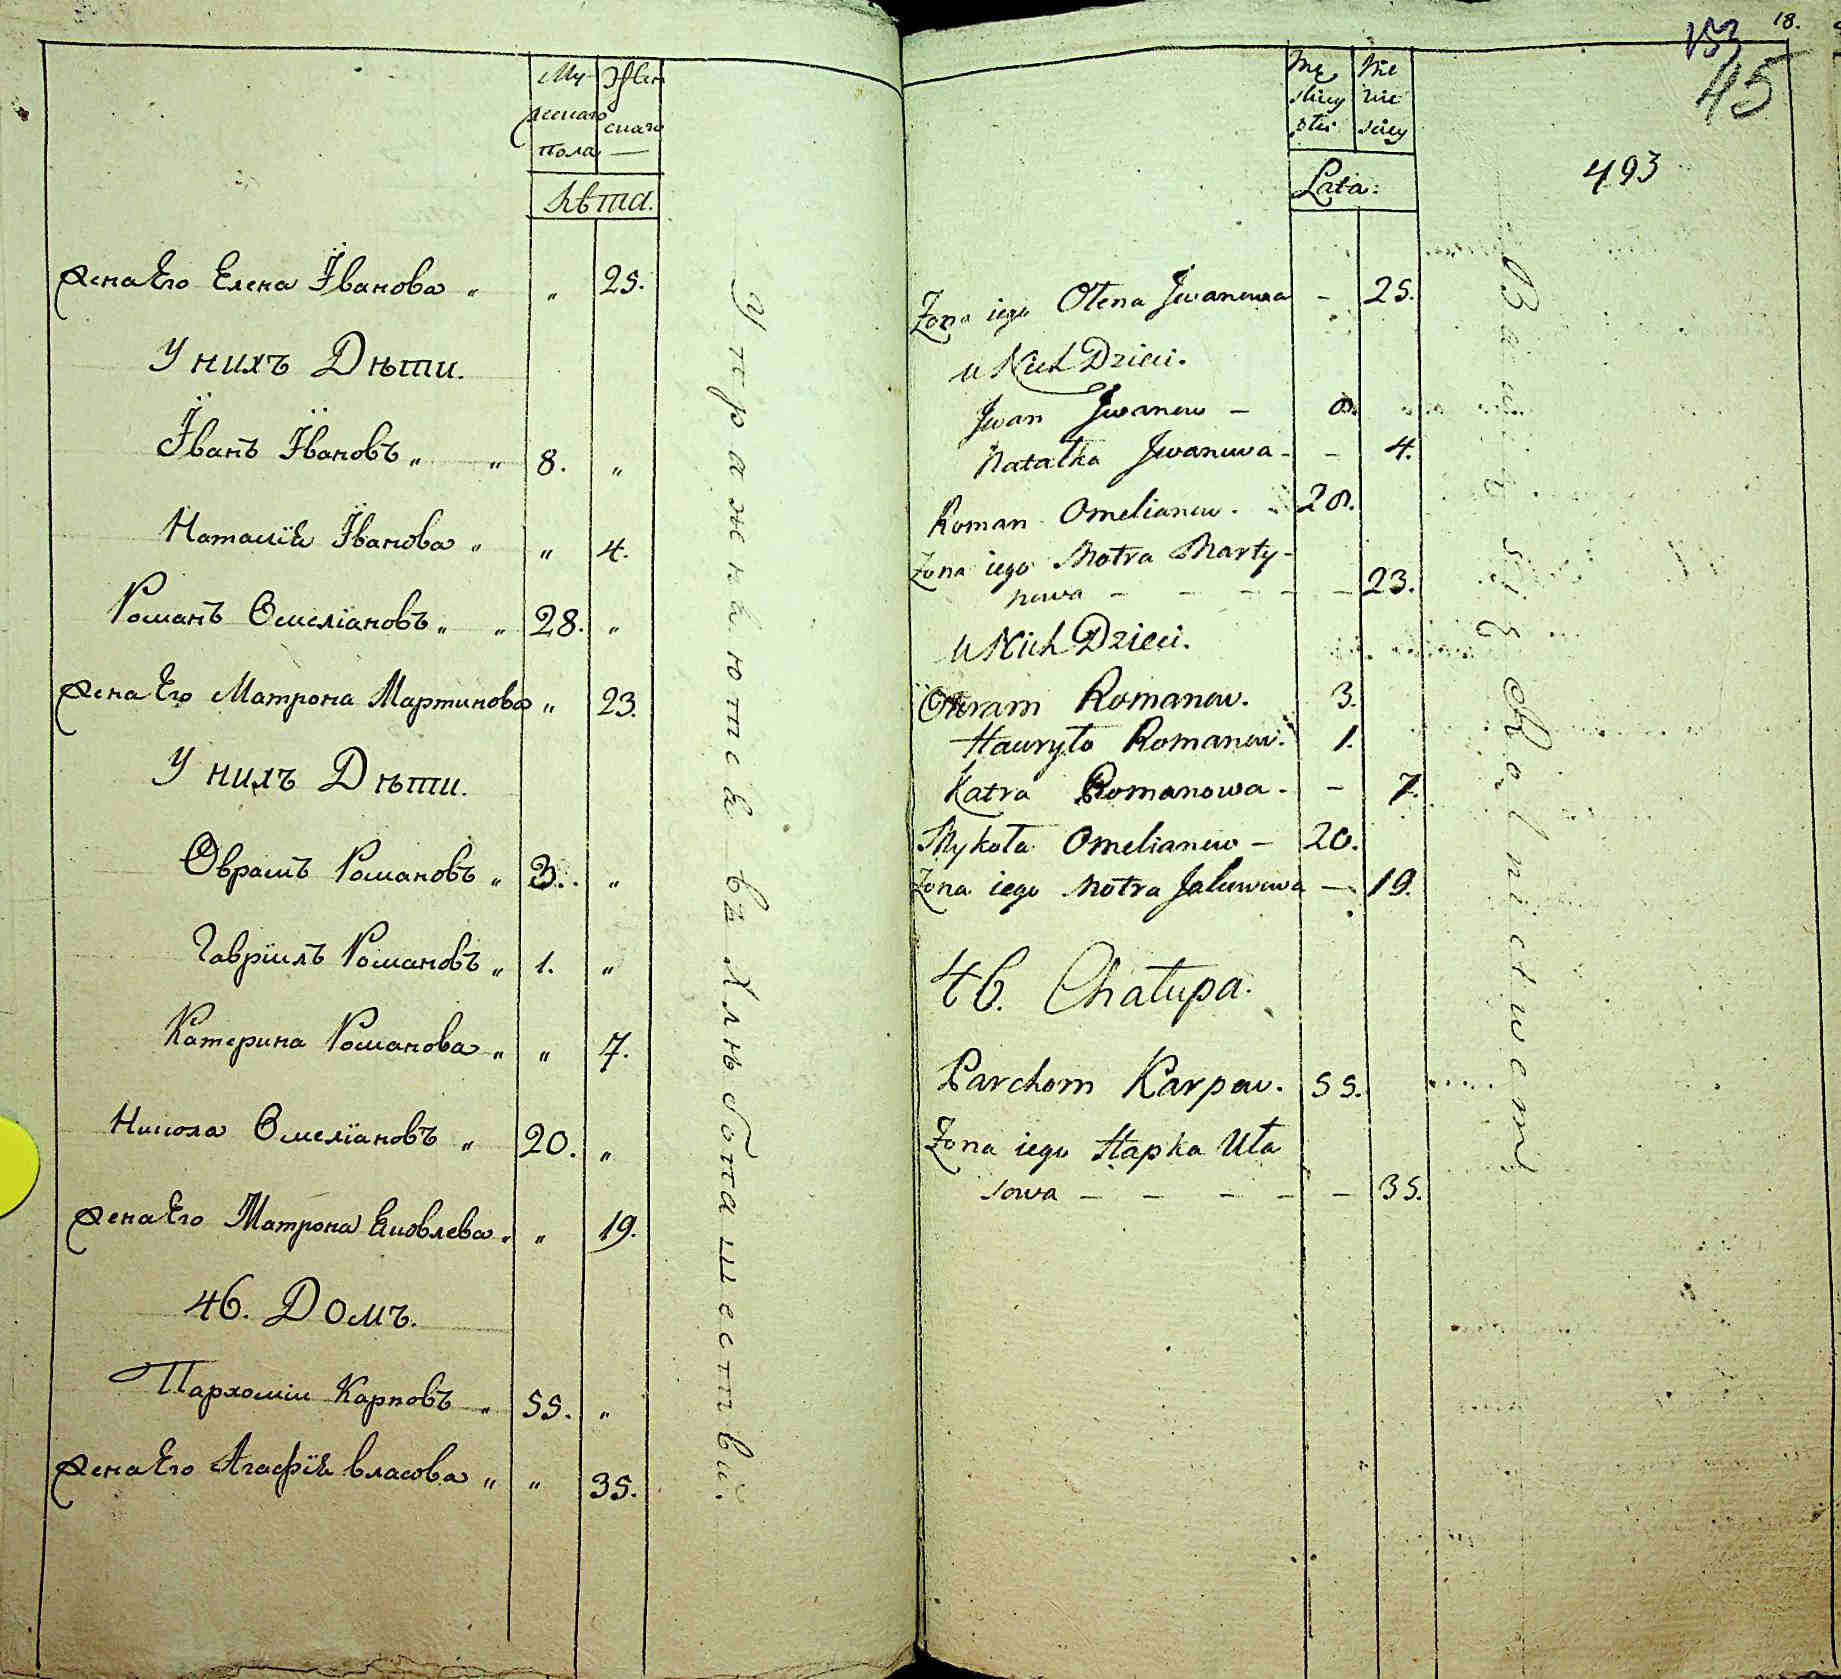 Му Жен
жескаго скаго
пола —
Лѣта.
Жена Его Елена Їванова „ „ 25.
У нихъ Дѣти.
Їванъ Ївановъ „ „ 8. „
Наталїя Їванова „ „ 4.
Романъ Омелїановъ „ „ 28. „
Жена Его Матрона Мартинова „ 23.
У нихъ Дѣти.
Оврамъ Романовъ „ 3. „
Гаврїилъ Романовъ „ 1. „
Катерина Романова „ „ 7.
Никола Омелїановъ „ 20. „
Жена Его Матрона Яковлева „ „ 19.
46. Домъ.
Пархомїи Карповъ „ 55. „
Жена Его Агафїя Власова „ „ 35.
Упражняются въ Хлѣбопашествѣ.
18.
153
45
493
Mę Nie
skiey wie
płci skiey
Lata:
Zona iego Ołena Jwanowa – 25.
u Nich Dzieci.
Jwan Jwanow – 8.
Natałka Jwanowa – – 4.
Roman Omelianow. – 28.
Zona iego Motra Marty-
nowa – – – – – 23.
u Nich Dzieci.
Owram Romanow. 3.
Hawryło Romanow. 1.
Katra Romanowa – – 7.
Mykoła Omelianow – 20.
Zona iego Motra Jakowowa – 19.
46. Chałupa.
Parchom Karpow. 55.
Zona iego Hapka Uła
sowa – – – – – 35.
Bawią się Rolnictwem